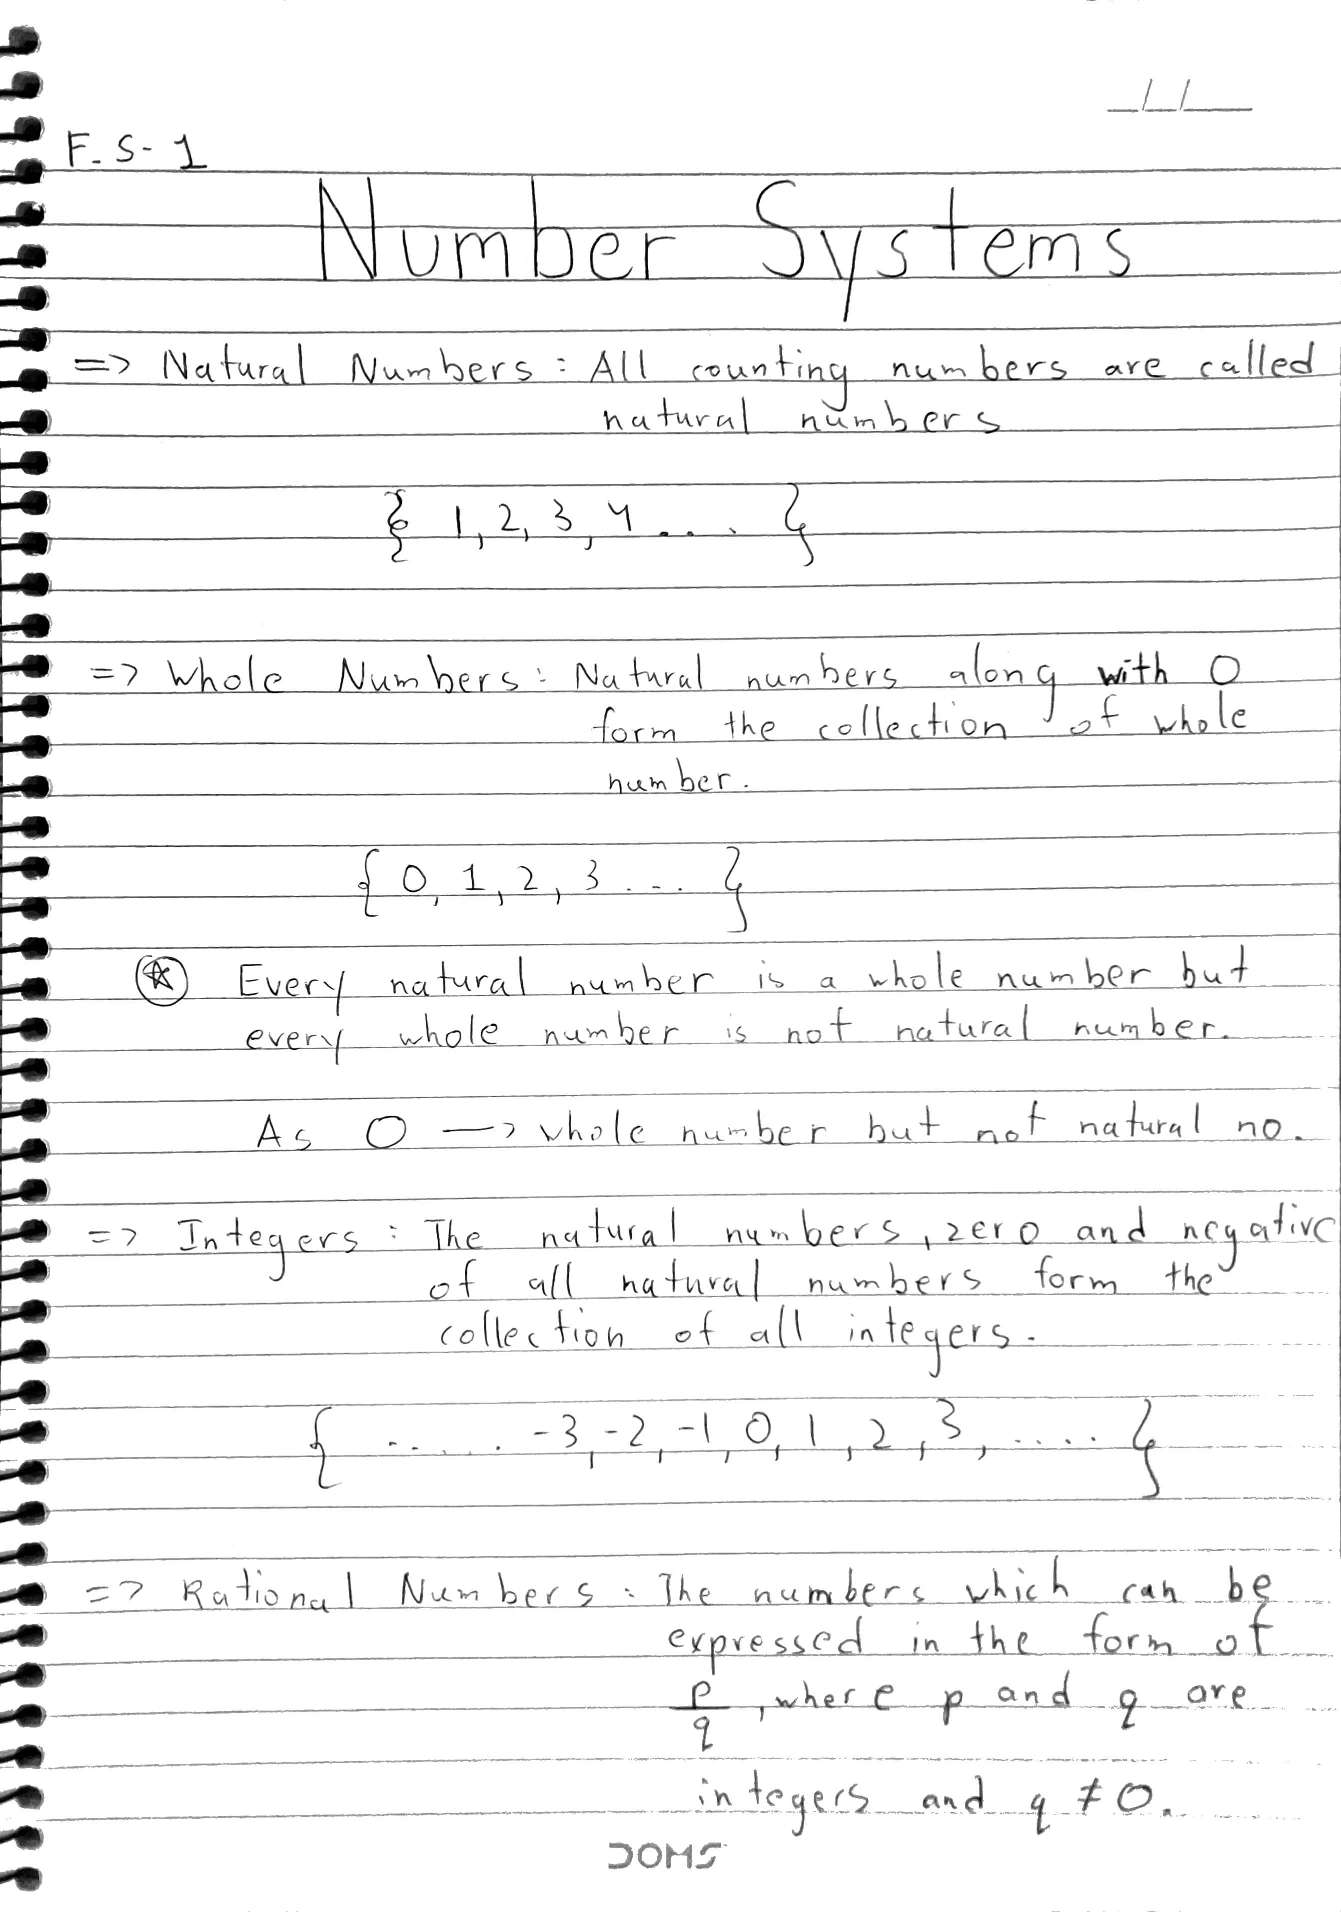 __/__/____
F.S-1
Number Systems
=> Natural Numbers : All counting numbers are called
natural numbers
{ 1, 2, 3, 4 .... }
=> Whole Numbers : Natural numbers along with 0
form the collection of whole
number.
{ 0, 1, 2, 3 ... }
Every natural number is a whole number but
every whole number is not natural number.
As 0 —> whole number but not natural no.
=> Integers : The natural numbers, zero and negative
of all natural numbers form the
collection of all integers.
{ ..... -3, -2, -1, 0, 1, 2, 3, .... }
=> Rational Numbers : The numbers which can be
expressed in the form of
p/q, where p and q are
integers and q ≠ 0.
DOMS